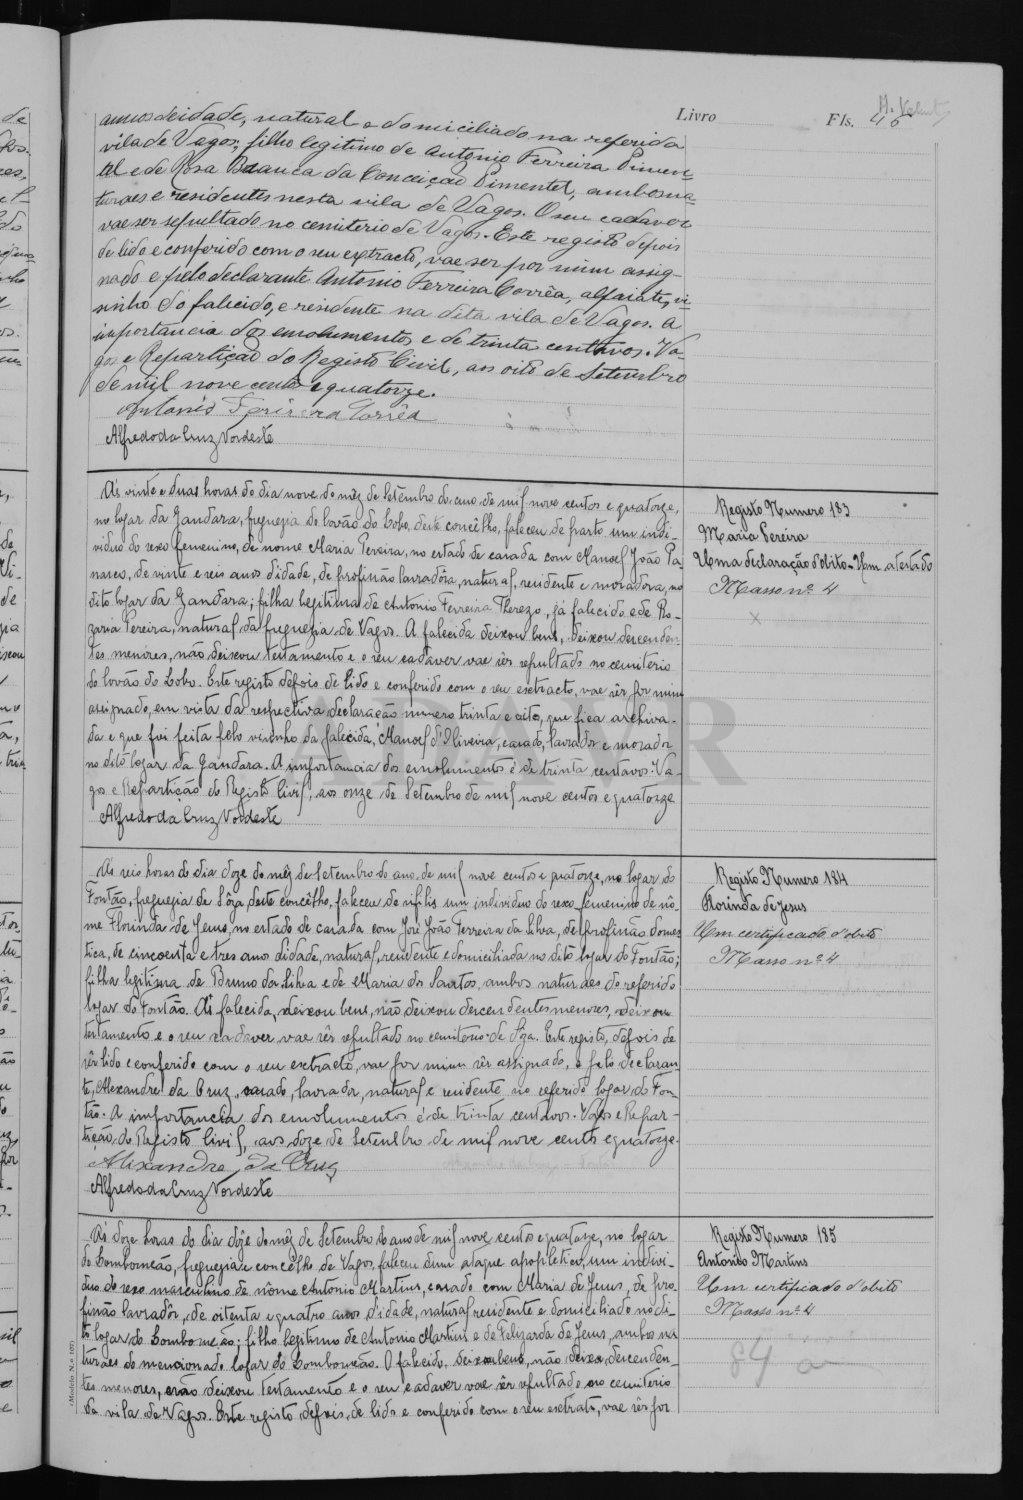 Livro Fls. 46
annos de idade, natural e domiciliado na referida
vila de Vagos, filho legitimo de Antonio Ferreira Pimen-
tel e de Rosa Branca da Conceição Pimentel, ambos na-
turaes e residentes nesta vila de Vagos. O seu cadaver
vae ser sepultado no cemiterio de Vagos. Este registo depois
de lido e conferido com o seu extracto, vae ser por mim assig-
nado e pelo declarante Antonio Ferreira Corrêa, alfaiate, vi-
sinho do falecido, e residente na dita vila de Vagos. A
importancia dos emolumentos e de trinta centavos. Va-
gos e Repartição do Registo Civil, aos oito de Setembro
de mil nove centos e quatorze.
Antonio Ferreira Corrêa
Alfredo da Cruz Nordeste
Ás vinte e duas horas do dia nove do mêz de Setembro do ano de mil nove centos e quatorze,
no logar da Gandara, freguezia de Covão do Lobo, deste concêlho, faleceu de parto um indi-
viduo do sexo femenino, de nome Maria Pereira, no estado de casada com Manoel João Pa
nasco, de vinte e seis anos d'idade, de profissão lavradôra, natural, residente e moradora, no
dito logar da Gandara; filha legitima de Antonio Ferreira Therezo, já falecido e de Ro-
zaria Pereira, natural da freguezia de Vagos. A falecida deixou bens, deixou descenden-
tes menores, não deixou testamento e o seu cadaver vae sêr sepultado no cemiterio
do Covão do Lobo. Este registo depois de lido e conferido com o seu extracto, vae sêr por mim
assignado, em vista da respectiva declaração numero trinta e oito, que fica archiva-
da e que foi feita pelo visinho da falecida, Manoel d'Oliveira, casado, lavrador e morador
no dito logar da Gandara. A importancia dos emolumentos é de trinta centavos. Va-
gos e Repartição do Registo Civil, aos onze de Setembro de mil nove centos e quatorze
Alfredo da Cruz Nordeste
Registo Numero 183
Maria Pereira
Uma declaração d'obito - Um atestado
Masso nº 4
Ás seis horas do dia doze do mês de Setembro do ano de mil nove centos e quatorze, no logar do
Fontão, freguezia de Sôza, deste concêlho, faleceu de sifilis um individuo do sexo femenino de nô-
me Florinda de Jesus, no estado de casada com José João Ferreira da Silva, de profissão domes
tica, de cincoenta e tres anos d'idade, natural, residente e domiciliada no dito logar do Fontão;
filha legitima de Bruno da Silva e de Maria dos Santos, ambos naturaes do referido
logar do Fontão. A falecida, deixou bens, não deixou descendentes menores, deixou
testamento e o seu cadaver, vae sêr sepultado no cemiterio de Soza. Este registo, depois de
sêr lido e conferido com o seu extracto, vae por mim sêr assignado, e pelo declaran
te, Alexandre da Cruz, casado, lavrador, natural e residente no referido logar do Fon-
tão. A importancia dos emolumentos é de trinta centavos. Vagos e Repar-
tição do Registo Civil, aos doze de Setembro de mil nove centos e quatorze.
Alexandre da Cruz
Alfredo da Cruz Nordeste
Registo Numero 184
Florinda de Jesus
Um certificado d'obito
Masso nº 4
Ás doze horas do dia dôze do mêz de Setembro do ano de mil nove centos e quatorze, no logar
do Lombomeão, freguezia e concêlho de Vagos, faleceu dum ataque apopletico, um indivi-
duo do sexo masculino de nôme Antonio Martins, casado com Maria de Jesus, de pro-
fissão lavradôr, de oitenta e quatro anos d'idade, natural residente e domiciliado no di-
to logar do Lombomeão; filho legitimo de Antonio Martins e de Felizarda de Jesus, ambos na
turaes do mencionado logar do Lombomeão. O falecido, deixou bens, não deixa descenden-
tes menores, não deixou testamento e o seu cadaver vae sêr sepultado no cemiterio
da vila de Vagos. Este registo depois, de lido e conferido com o seu extrato, vae sêr por
Registo Numero 185
Antonio Martins
Um certificado d'obito
Masso nº 4
84 a
(Modelo N.º 107)
ADAVR